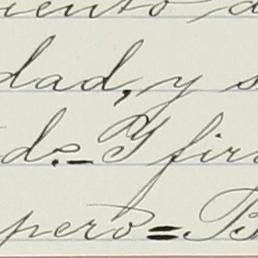 iento d
dad, y s
do.- Y fir
pero = B